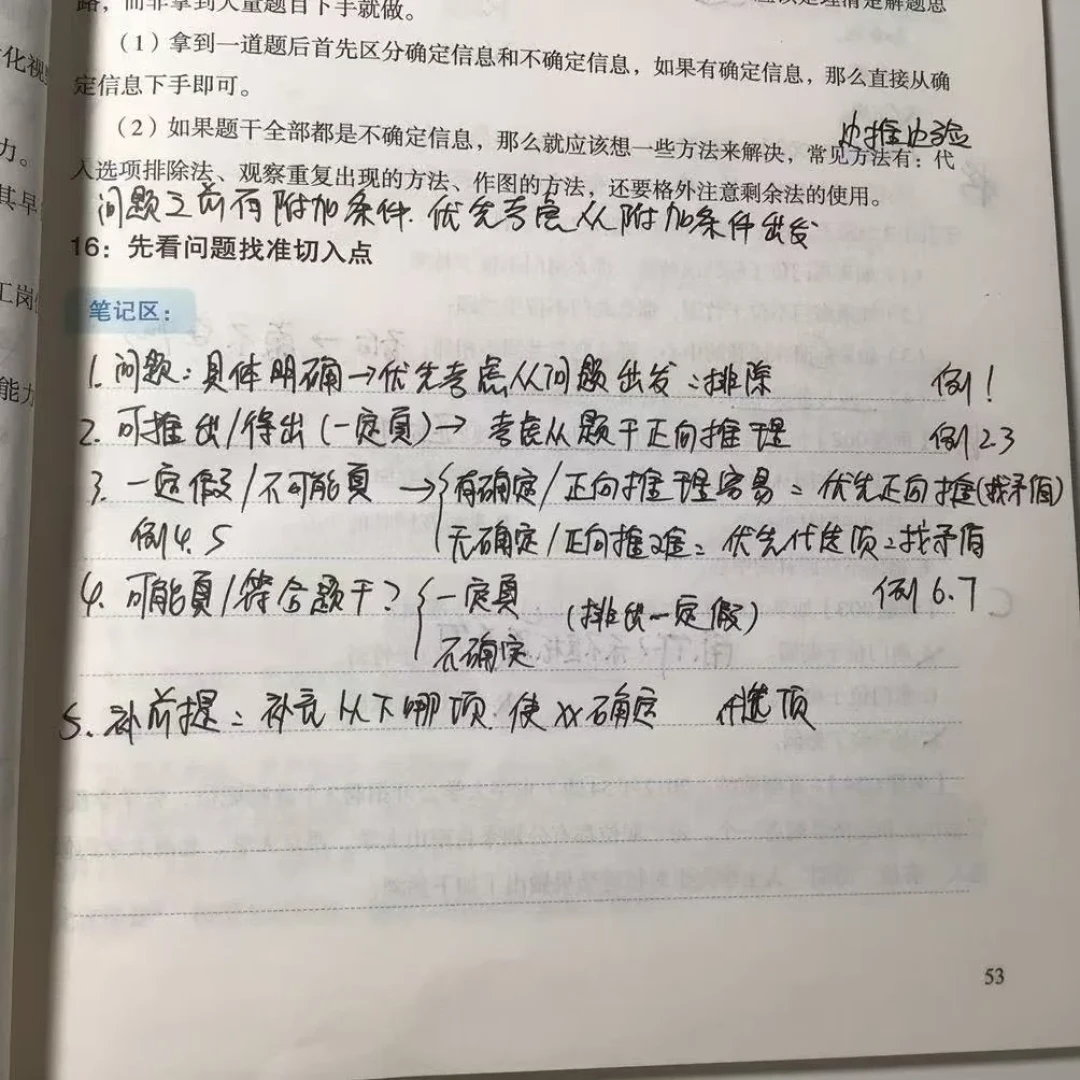 路，而非拿到大量题目下手就做。
（1）拿到一道题后首先区分确定信息和不确定信息，如果有确定信息，那么直接从确
定信息下手即可。
（2）如果题干全部都是不确定信息，那么就应该想一些方法来解决，常见方法有：代
边推边验
入选项排除法、观察重复出现的方法、作图的方法，还要格外注意剩余法的使用。
问题之前有附加条件.优先考虑从附加条件出发
16：先看问题找准切入点
笔记区：
1.问题：具体明确→优先考虑从问题出发：排除 例1
2.可推出/得出(一定真)→考虑从题干正向推理 例2 3
3.一定假/不可能真→{有确定/正向推理容易：优先正向推(找矛盾)
例4.5 无确定/正向推难：优先代选项：找矛盾
4.可能真/符合题干？{一定真 (排出一定假) 例6.7
不确定
5.补前提：补充以下哪项.使xx确定 选项
化视
力。
其早
工岗
能力
53